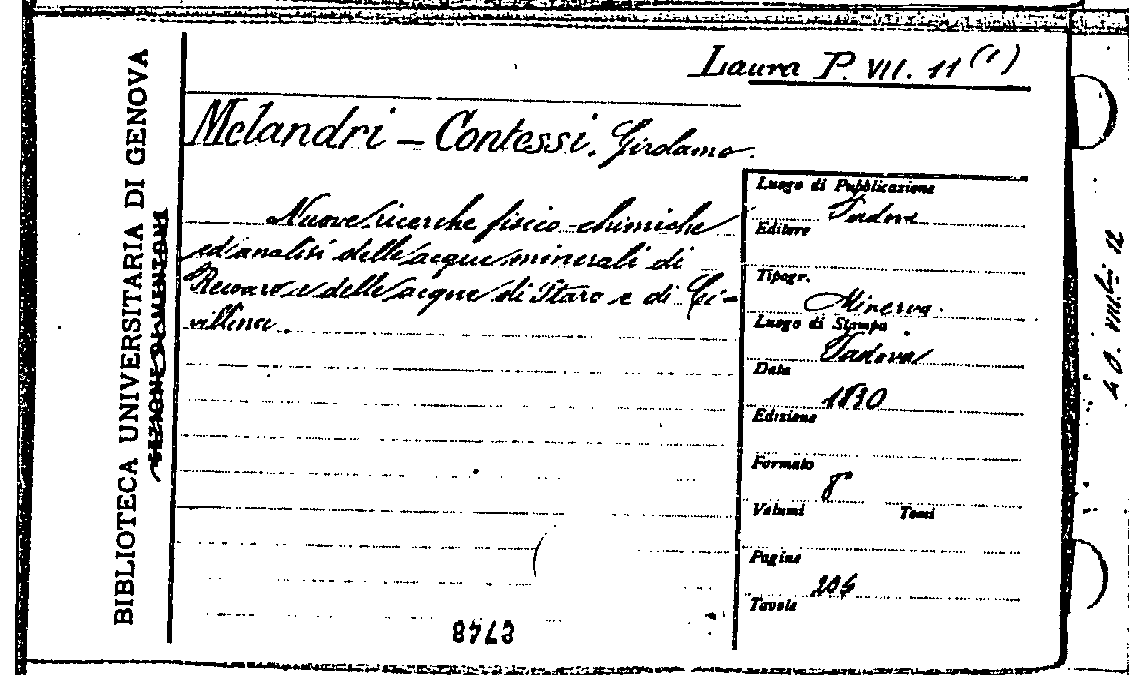 Laura P. VII. 11 (1)
Melandri - Contessi. Girolamo.
Nuove ricerche fisico-chimiche
ed analisi delle acque minerali di
Recoaro e delle acque di Staro e di Ci-
villina.
Luogo di Pubblicazione
Padova
Editore
Tipogr.
Minerva.
Luogo di Stampa
Padova
Data
1830
Edizione
Formato
8°
Volumi Tomi
Pagine
204
Tavole
BIBLIOTECA UNIVERSITARIA DI GENOVA
8748